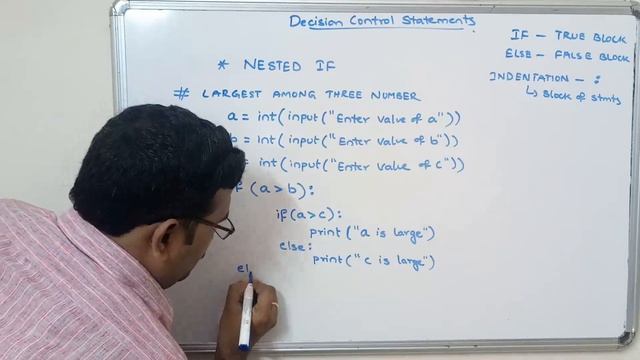 Decision Control Statements
IF – TRUE BLOCK
ELSE – FALSE BLOCK
INDENTATION – :
↳ Block of stmts
* NESTED IF
# LARGEST AMONG THREE NUMBER
a = int(input("Enter value of a"))
b = int(input("Enter value of b"))
= int(input("Enter value of c"))
if (a>b):
if(a>c):
print("a is large")
else:
print("c is large")
el